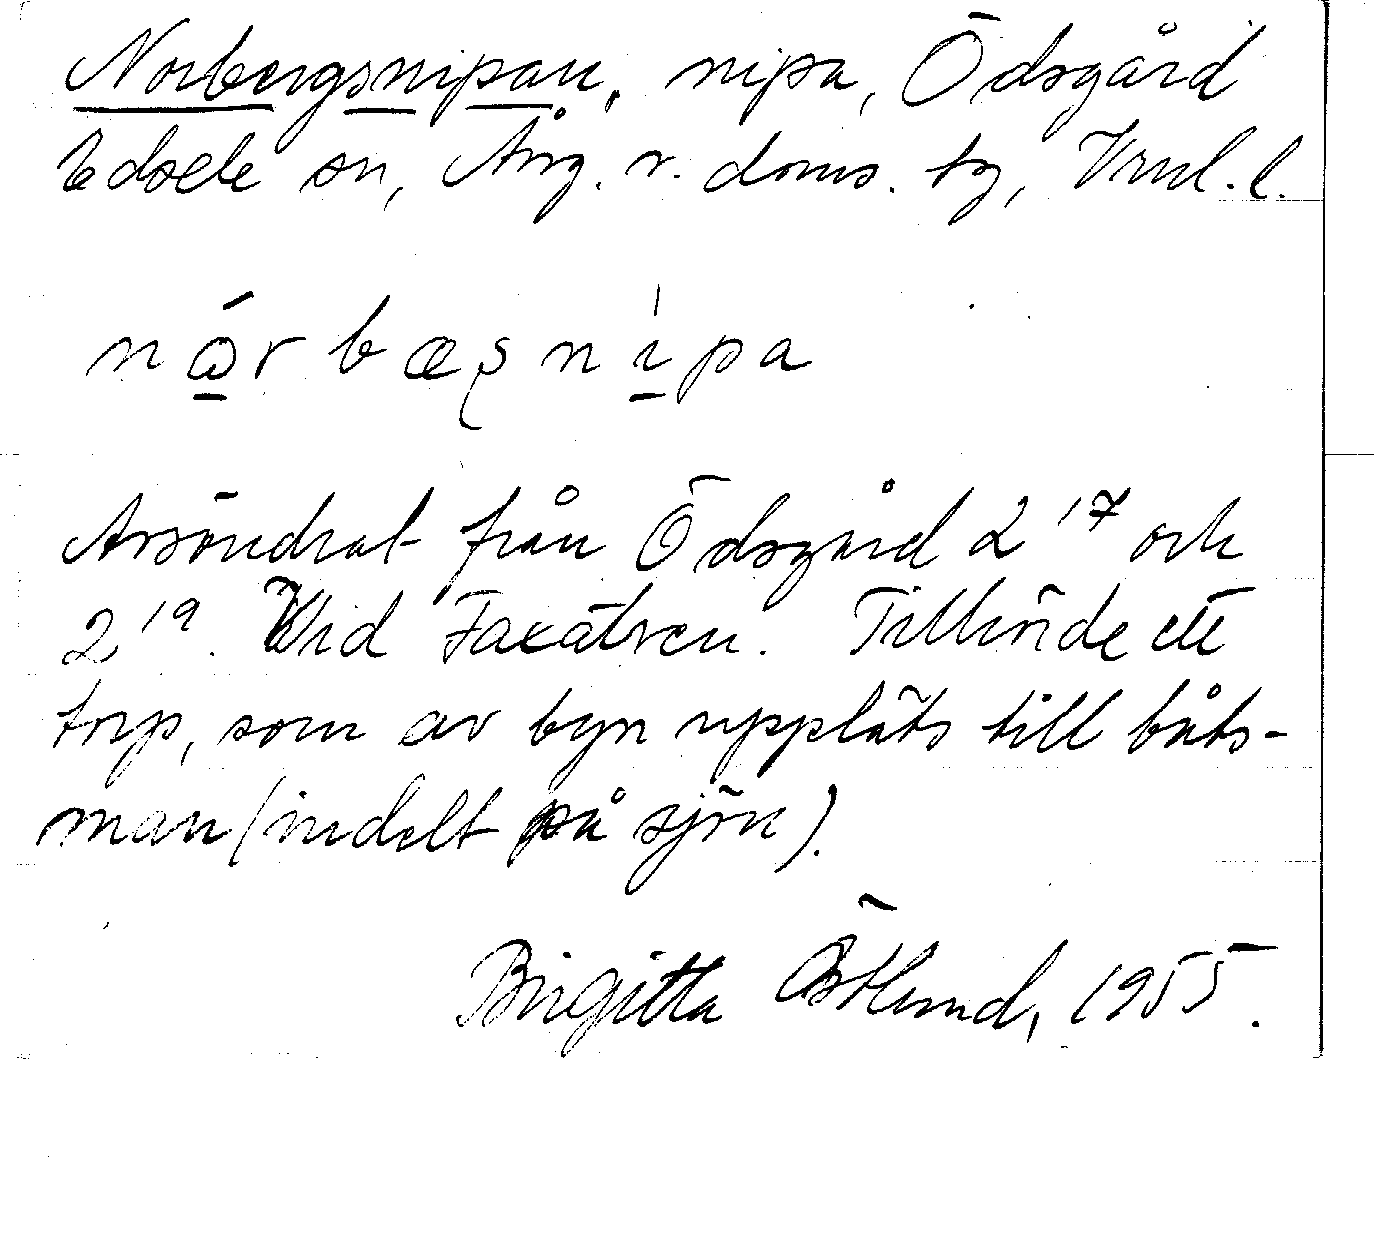 Norbergsnipan, nipa, Ödsgård
Edsele sn, Ång. v. doms. tg, Vrnl. l.
nǿrbæșnı̍pa
Avsöndrat från Ödsgård 2¹⁷ och
2¹⁹. Vid Faxälven. Tillhörde ett
torp, som av byn uppläts till båts-
man (indelt på sjön).
Birgitta Östlund, 1955.